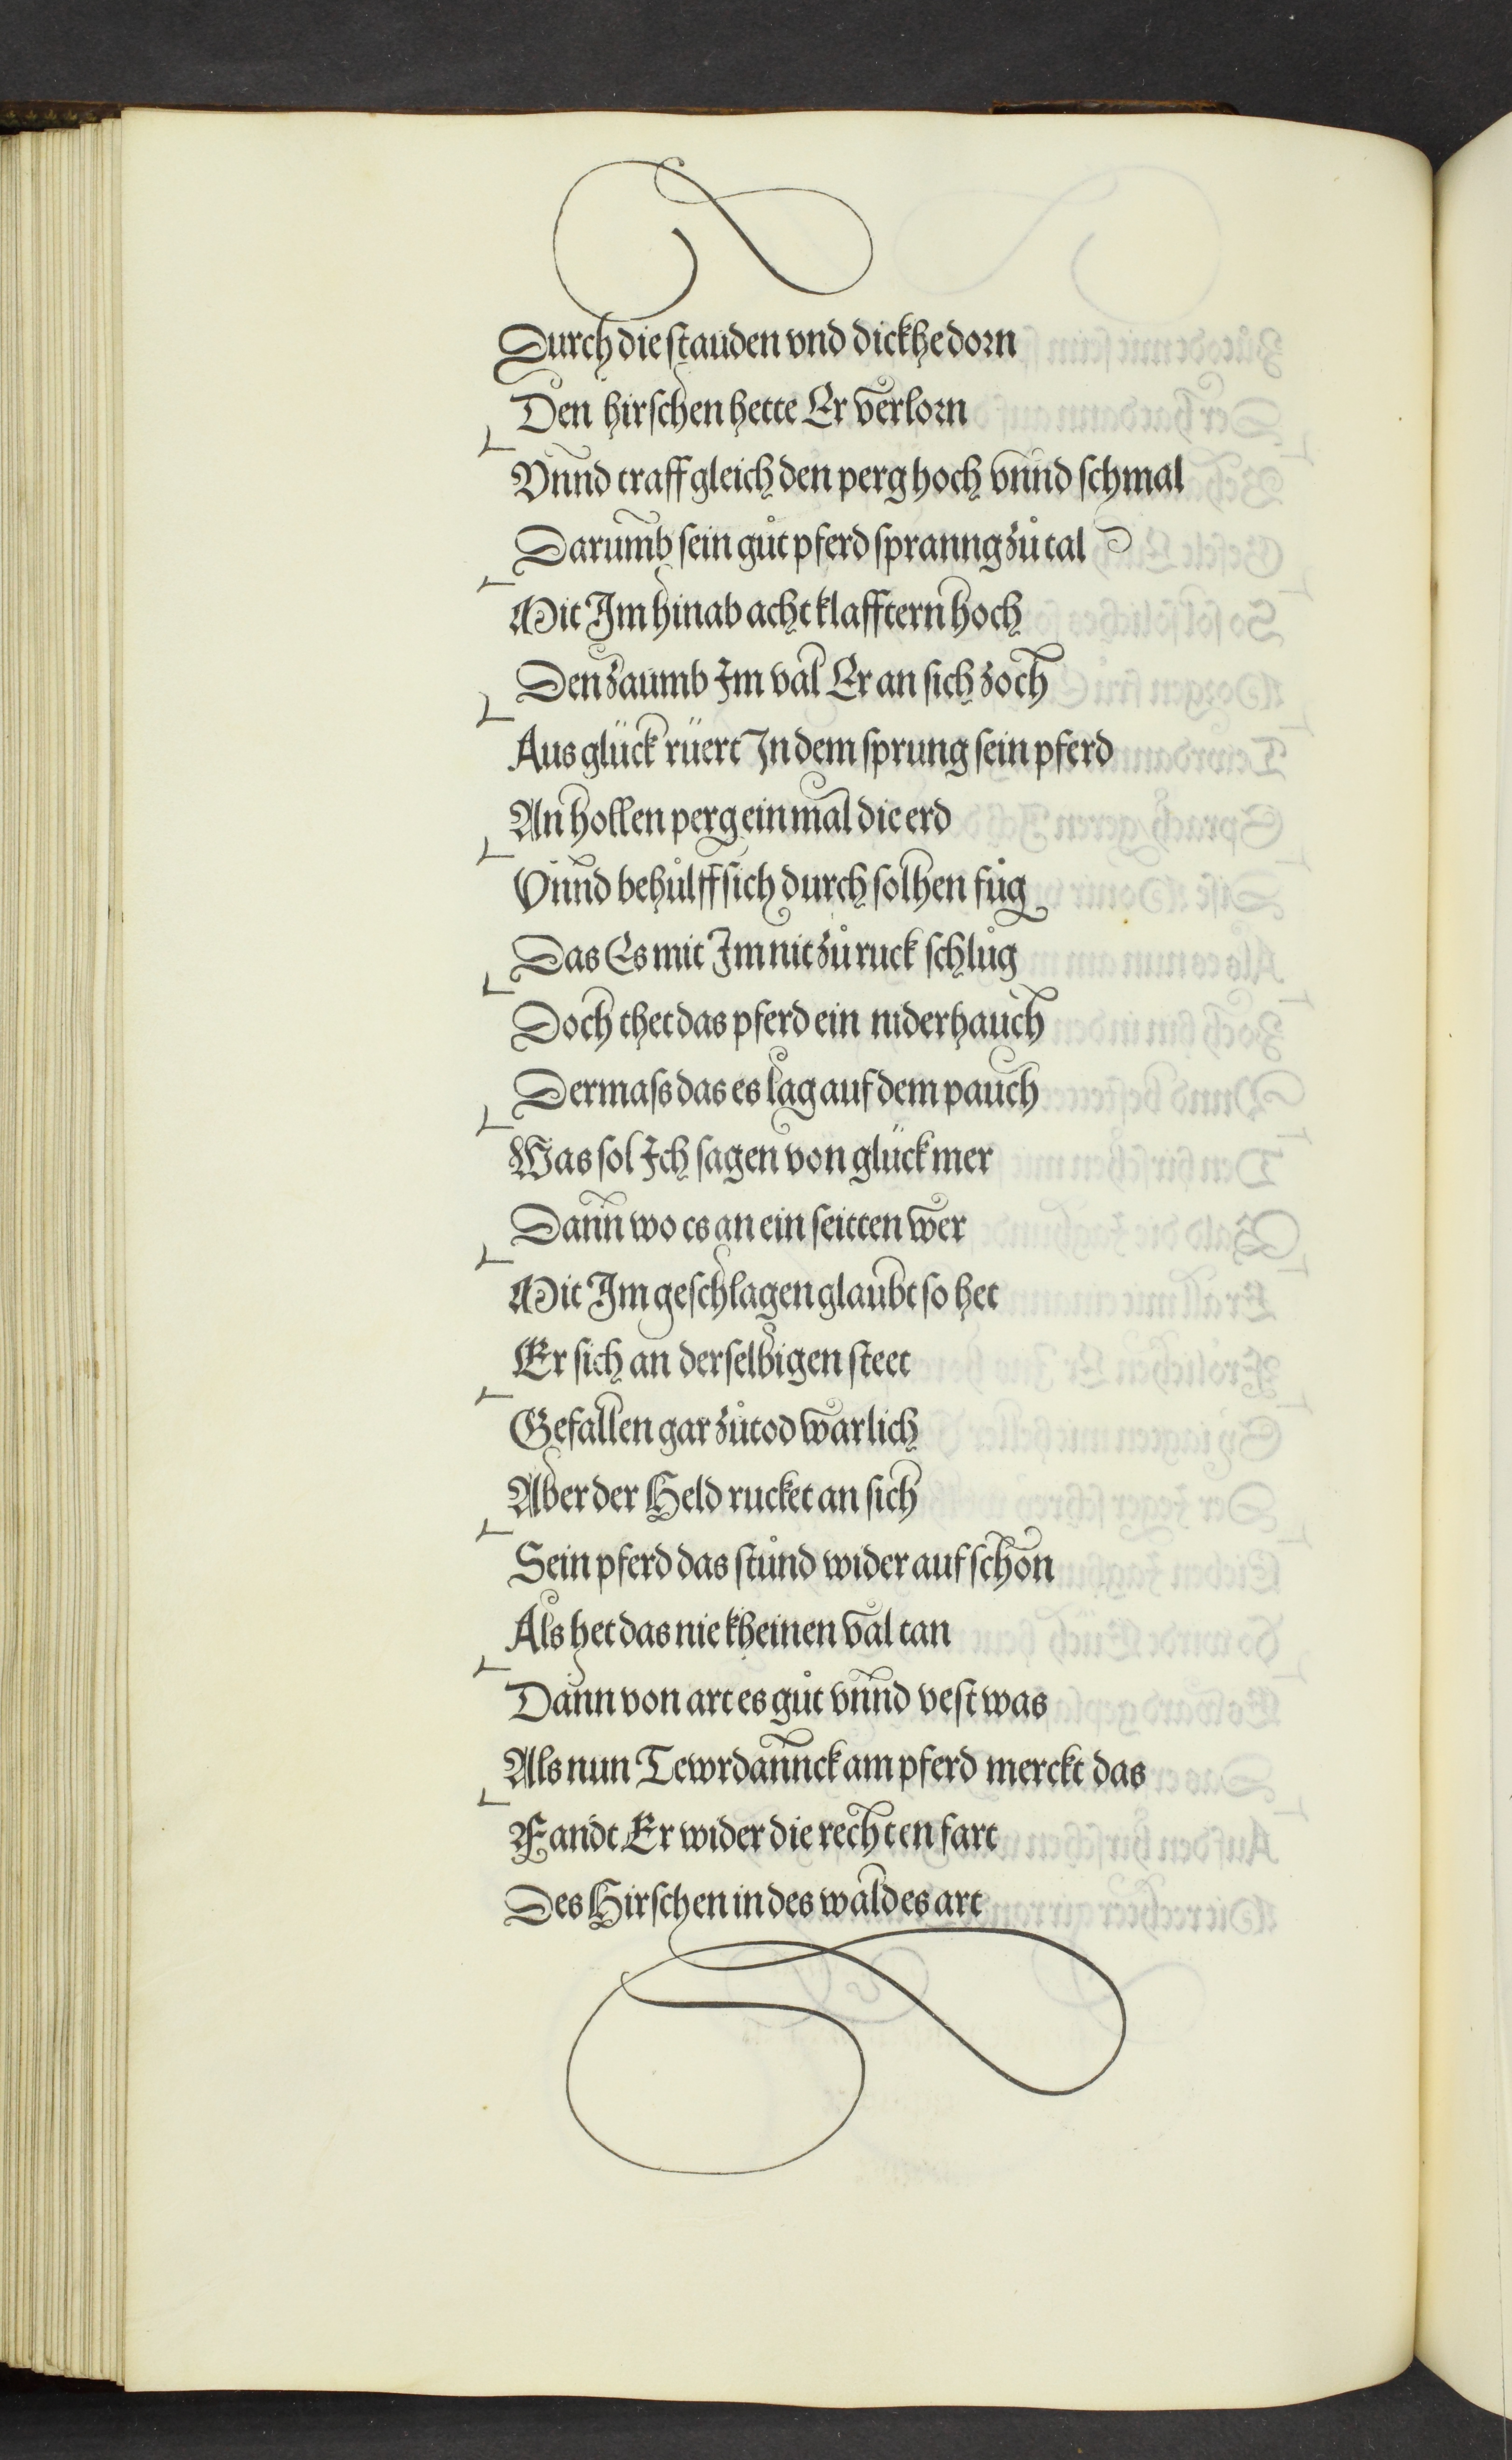 Durch die stauden vnd dickhe dorn
Den hirschen hette Er verlorn
Vnnd traff gleich den perg hoch vnnd schmal
Darumb sein gůt pferd spranng zů tal
Mit Im hinab acht klafftern hoch
Den zaumb Im val Er an sich zoch
Aus glück rüert In dem sprung sein pferd
An hollen perg ein mal die erd
Vnnd behůlff sich durch solhen fůg
Das Es mit Im nit zů ruck schlůg
Doch thet das pferd ein niderhauch
Dermaſs das es lag auf dem pauch
Was sol Ich sagen von glück mer
Dann wo es an ein seitten wer
Mit Im geschlagen glaubt so het
Er sich an derselbigen steet
Gefallen gar zů tod warlich
Aber der Held rucket an sich
Sein pferd das stůnd wider auf schon
Als het das nie kheinen val tan
Dann von art es gůt vnnd vest was
Als nun Tewrdannck am pferd merckt das
Fandt Er wider die rechten fart
Des Hirschen in des waldes art